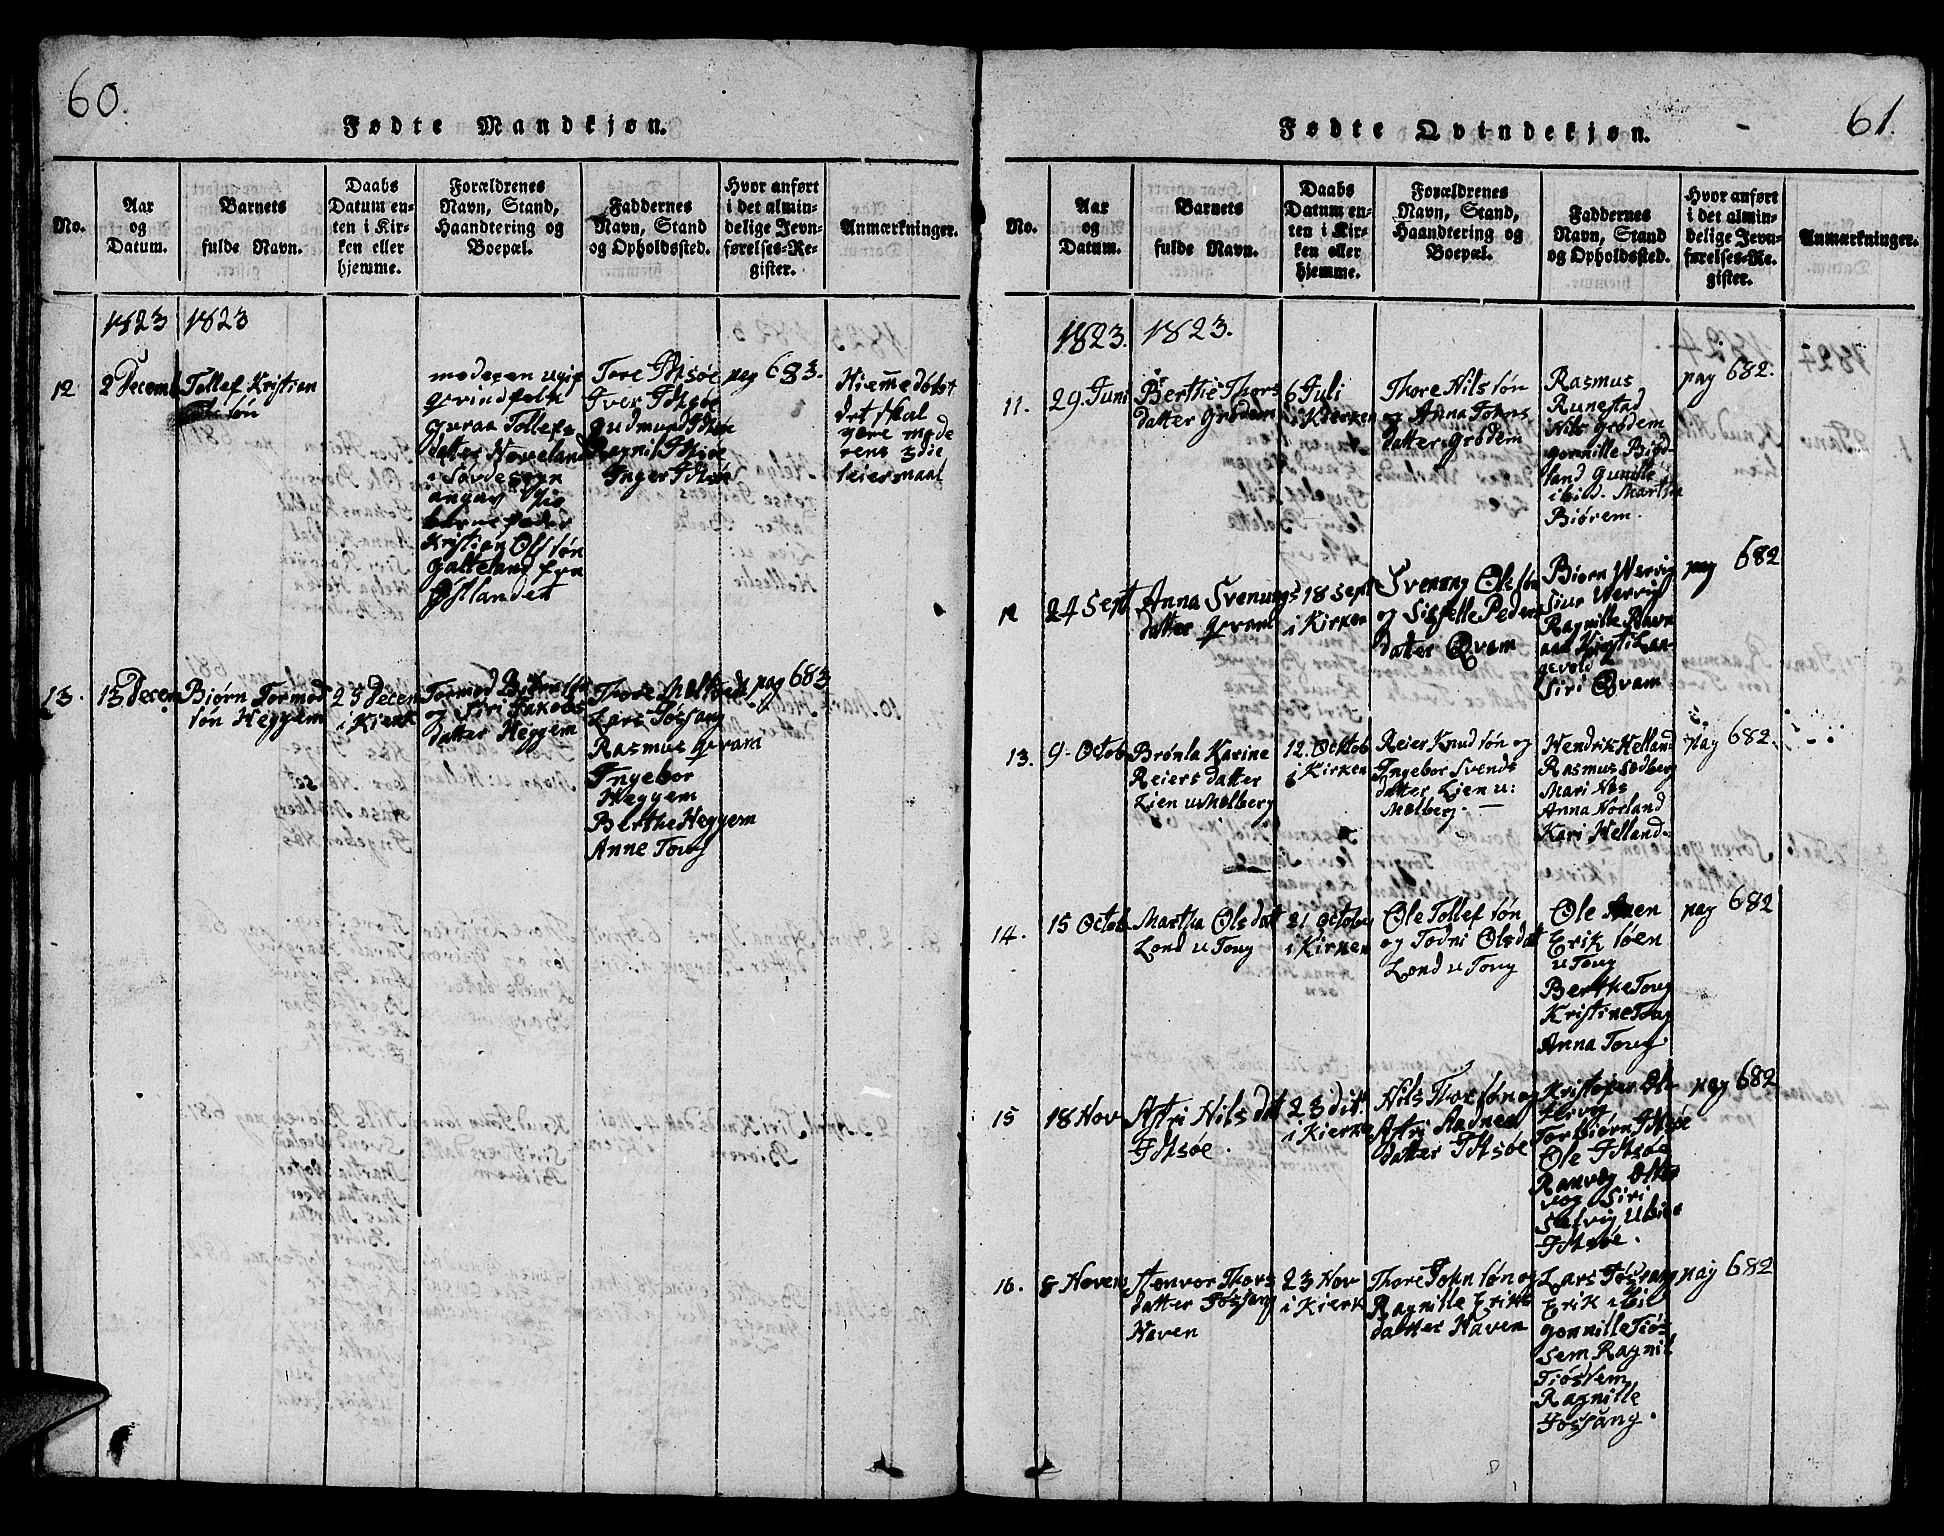 60.
Fødte Mandkjøn.
No.
Aar
og
Datum.
Barnets
fulde Navn.
Daabs
Datum en-
ten i Kir-
ken eller
hjemme.
Forældrenes
Navn, Stand,
Haandtering og
Boepæl.
Faddernes
Navn, Stand
og Opholdssted.
Hvor anført
i det almin-
delige Jevn-
førelses-Re-
gister.
Anmærkninger.
1823
1823
12
2 Decemb
Tollef Kristian
søn
moderen ugift
qvindfolk
guraa Tollefs
datter Hoveland
i Søvde sogn
angav til
barne fader
Kristian Ols søn
galteland fra
Østlandet
Tore Idsøe
Iver Idsøe
gudmund Idsøe
Ragnil Idsøe
Inger Idsøe
pag 683.
Hiemedøbt
det skal
være mode
rens 3die
leiersmaal
13.
13 Decem
Biørn Tormod
søn Heggem
25 Decem
i Kierk
Tormod Biørnsøn
og Siri Jakobs
datter Heggem
Thore Meltvedt
Lars Fossang
Rasmus qvam
Ingebor
Heggem
Berthe Heggem
Anne Toug
pag 683
61.
Fødte Qvindekjøn.
No.
Aar
og
Datum.
Barnets
fulde Navn.
Daabs
Datum en-
ten i Kir-
ken eller
hjemme.
Forældrenes
Navn, Stand,
Haandtering og
Boepæl.
Faddernes
Navn, Stand
og Opholdssted.
Hvor anført
i det almin-
delige Jevn-
førelses-Re-
gister.
Anmærkninger.
1823.
1823.
11.
29. Juni
Berthe Thors
datter Grødem
6 Juli
i Kierken
Thore Nils søn
og Anna Johns
datter Grødem
Rasmus
Runestad
Nils Grødem
gonnille Bigd-
land Gunille
ibid. Martha
Biørem.
pag 682.
12
24 Sept
Anna Svenungs
datter qvam
18 sept
i Kirken
Svenung Olssøn
og Sigselle Peders
datter Qvam
Biørn Wervig
Siur Wervig
Ragnille Ravn
aas Kirsti Laa-
gevold
Siri Qvam
pag 682
13.
9. Octob
Brønla Karine
Reiers datter
Lien u Mølberg
12. Ocktob
i Kirken
Reier Knud søn og
Ingebor Svends
datter Lien u:
Mølberg.
Hendrik Helland
Rasmus Sedberg
Mari Nes
Anna Norland
Kari Helland
pag 682.
14.
15 Octob
Martha Olsdatt
Lond u Toug
21 Octobr
i Kirken
Ole Tollef søn
og Todni Olsdatt
Lond u Toug
Ole Auen
Erik Søen
u Toug
Berthe Toug
Kristine Toug
Anna Toug.
pag 682
15
18 Nov
Astri Nils dat
Idsøe.
23 dit.
i Kierken
Nils Thor søn og
Astri Aadnea
datter Idsøe
Kristofer
Torbiørn Idsøe
Ole Idsøe
Ranveg
og Siri
Selvig
Idsøe.
pag 682
16.
8 Novem
Stenvor Thors
datter Fossang
Haven
23 Nov
i Kierk
Thore John søn og
Ragnille Eriks
datter Haven
Lars Fossang
Erik ibid
gonnille Tiøs
sem Ragnil
Tiøstem
Ragnille
Fossang.
pag 682